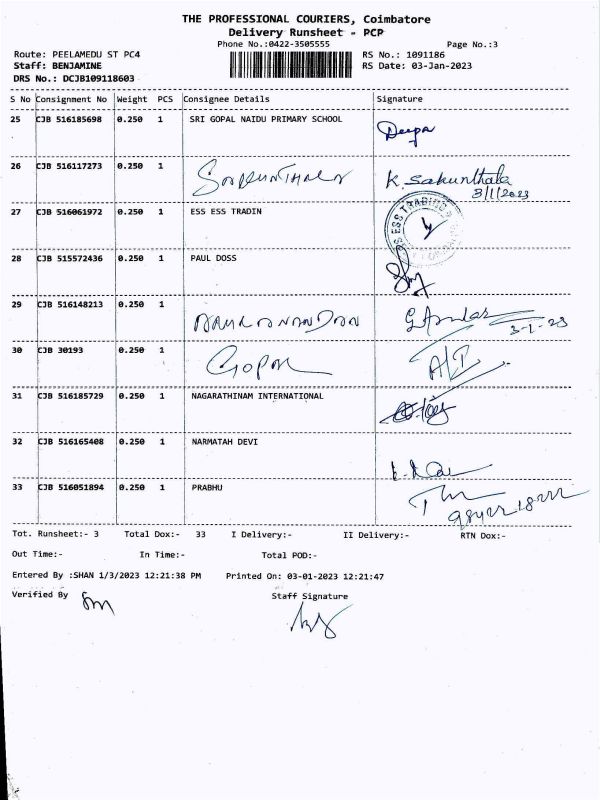 THE PROFESSIONAL COURIERS, Coimbatore
Delivery Runsheet - PCP
Phone No.:0422-3505555 Page No.:3
Route: PEELAMEDU ST PC4 RS No.: 1091186
Staff: BENJAMINE RS Date: 03-Jan-2023
DRS No.: DCJB109118603
S No Consignment No Weight PCS Consignee Details Signature
25 CJB 516185698 0.250 1 SRI GOPAL NAIDU PRIMARY SCHOOL Deepa
26 CJB 516117273 0.250 1 K. Sakunthala
3/1/2023
27 CJB 516061972 0.250 1 ESS ESS TRADIN
ESS ESS TRADING
28 CJB 515572436 0.250 1 PAUL DOSS
29 CJB 516148213 0.250 1
3-1-23
30 CJB 30193 0.250 1 Gopal
31 CJB 516185729 0.250 1 NAGARATHINAM INTERNATIONAL
32 CJB 516165408 0.250 1 NARMATAH DEVI
33 CJB 516051894 0.250 1 PRABHU
Tot. Runsheet:- 3 Total Dox:- 33 I Delivery:- II Delivery:- RTN Dox:-
Out Time:- In Time:- Total POD:-
Entered By :SHAN 1/3/2023 12:21:38 PM Printed On: 03-01-2023 12:21:47
Verified By Staff Signature